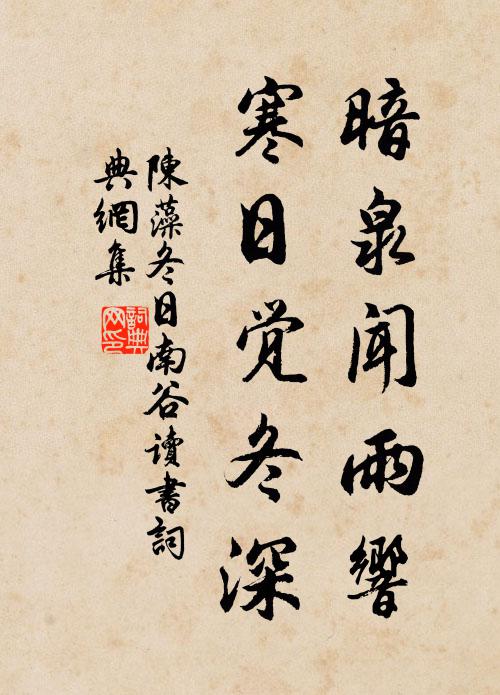 暗泉聞雨響
寒日覺冬深
陳藻冬日南谷讀書詞
典網集
詞典
网印